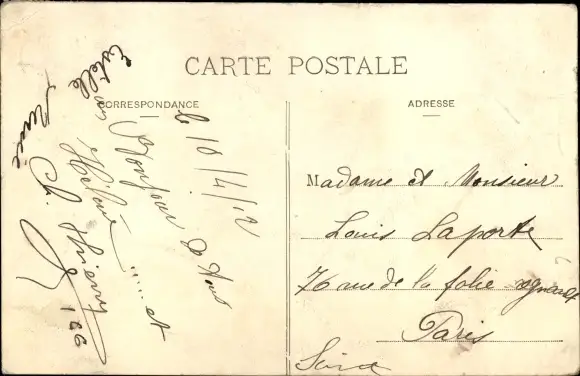 CARTE POSTALE
CORRESPONDANCE
ADRESSE
le 10/4/12
Bonjour de nous
Hélène ...... et
Estelle
Ch. Thierry
Madame et Monsieur
Louis Laporte
76 rue de la folie regnault
Paris
Seine